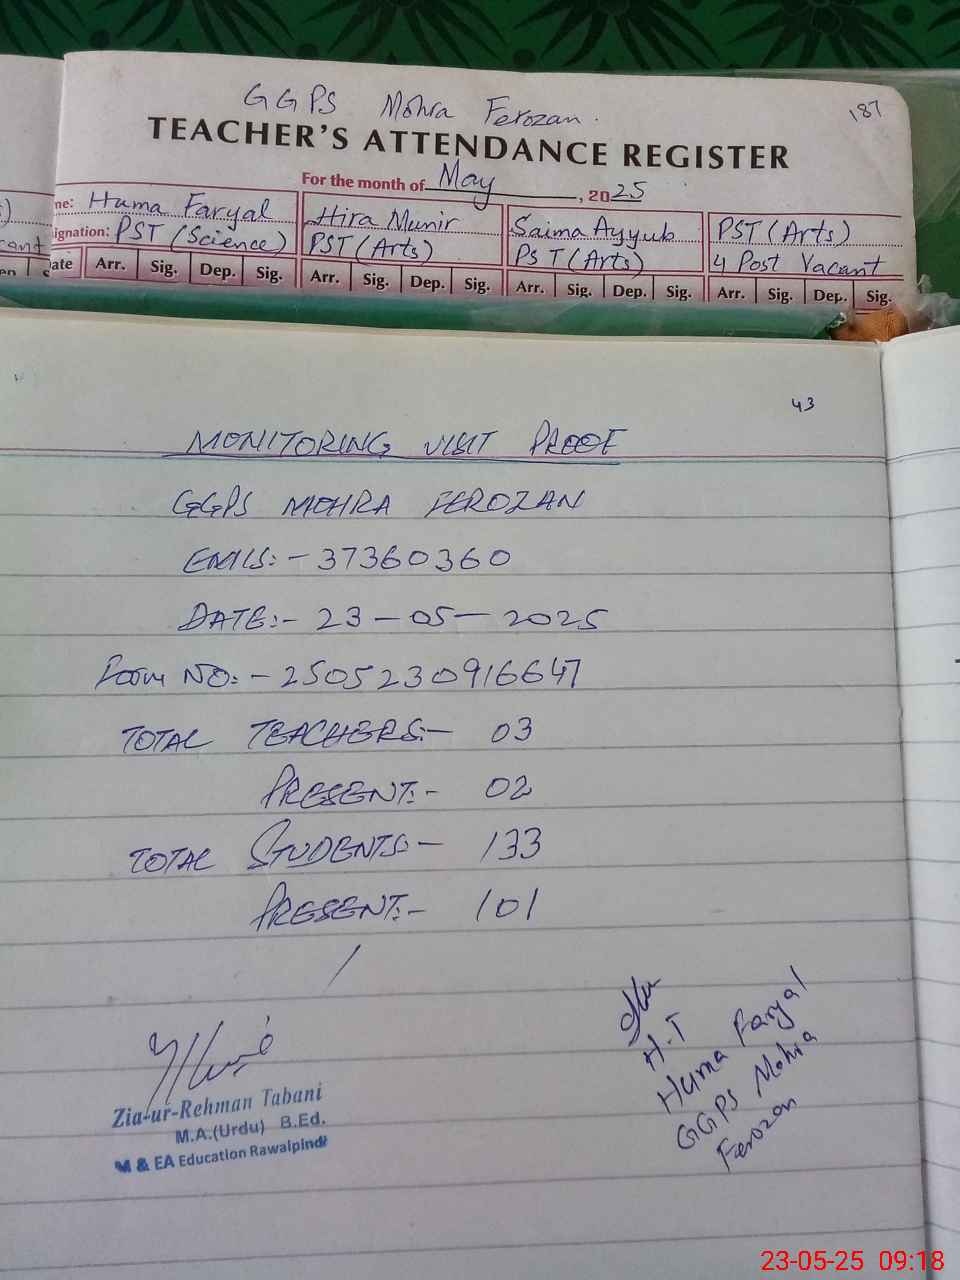 GGPS Mohra Ferozan.
187
TEACHER'S ATTENDANCE REGISTER
For the month of May, 2025
me: Huma Faryal
ignation: PST (Science)
Hira Munir
PST (Arts)
Saima Ayyub
PST (Arts)
PST (Arts)
4 Post Vacant
cant
ate Arr. Sig. Dep. Sig. Arr. Sig. Dep. Sig. Arr. Sig. Dep. Sig. Arr. Sig. Dep. Sig.
43
MONITORING VISIT PROOF
GGPS MOHRA FEROZAN
EMIS:- 37360360
DATE:- 23-05-2025
Form NO:- 2505230916647
TOTAL TEACHERS:- 03
PRESENT:- 02
TOTAL STUDENTS:- 133
PRESENT:- 101
Zia-ur-Rehman Tabani
M.A.(Urdu) B.Ed.
M & EA Education Rawalpindi
H.T
Huma Faryal
GGPS Mohra
Ferozan
23-05-25 09:18